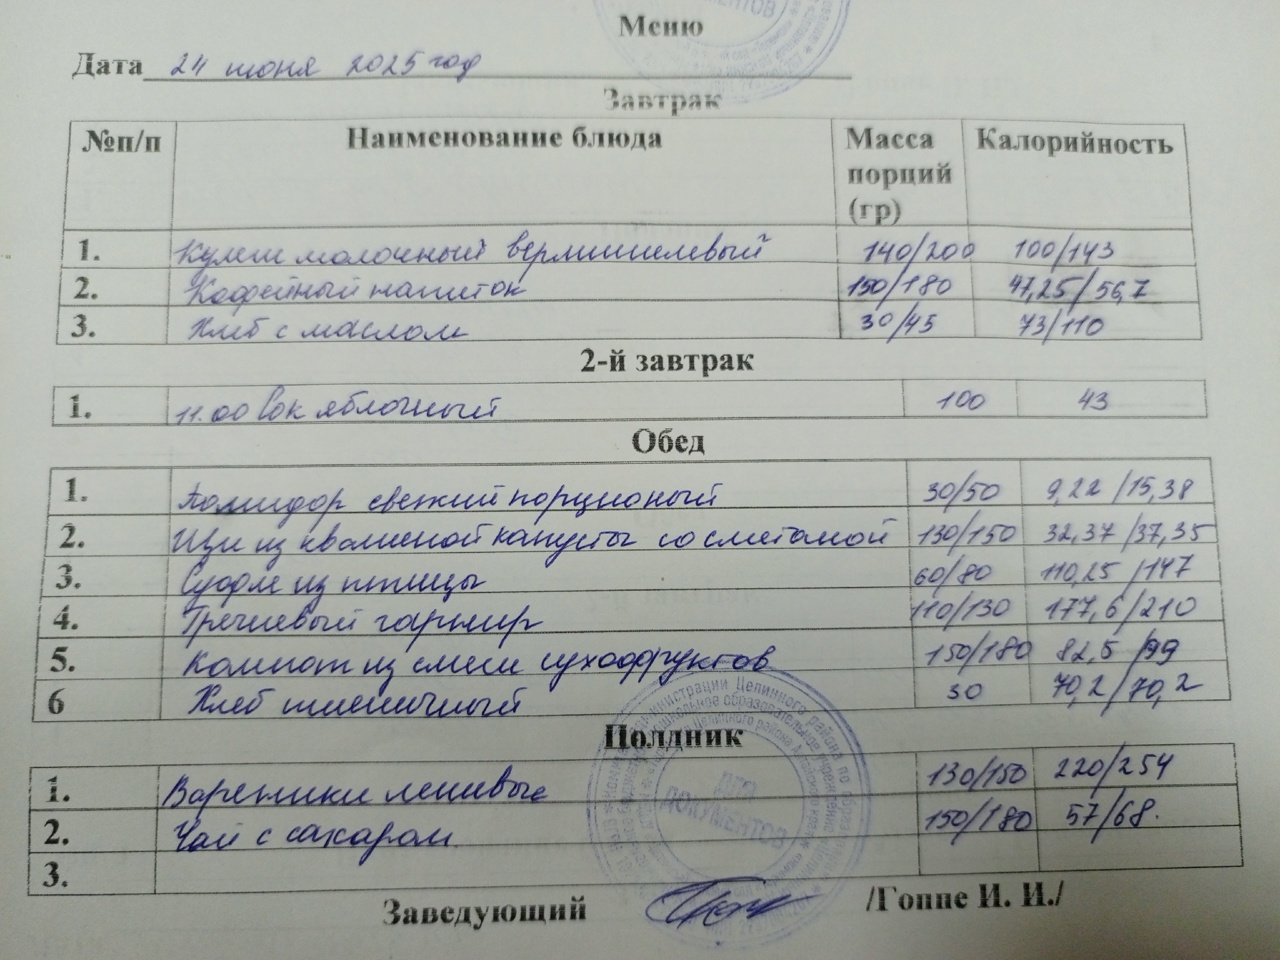 Меню
Дата 24 июня 2025 год
Завтрак
№п/п Наименование блюда Масса порций (гр) Калорийность
1. Кулеш молочный вермишелевый 140/200 100/143
2. Кофейный напиток 150/180 47,25/56,7
3. Хлеб с маслом 30/45 73/110
2-й завтрак
1. 11.00 Сок яблочный 100 43
Обед
1. Помидор свежий порционый 30/50 9,22/15,38
2. Щи из квашеной капусты со сметаной 130/150 32,37/37,35
3. Суфле из птицы 60/80 110,25/147
4. Гречневый гарнир 110/130 177,6/210
5. Компот из смеси сухофруктов 150/180 82,5/99
6 Хлеб пшеничный 30 70,2/70,2
Полдник
1. Вареники ленивые 130/150 220/254
2. Чай с сахаром 150/180 57/68.
3.
ДЛЯ ДОКУМЕНТОВ
Заведующий /Гоппе И. И./